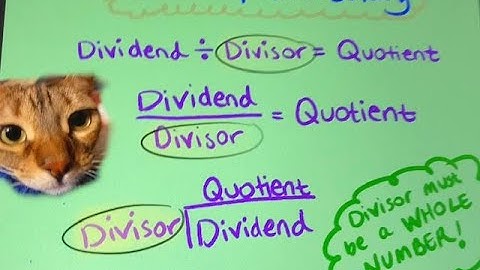 Dividend ÷ Divisor = Quotient
Dividend
Divisor
= Quotient
Quotient
Divisor Dividend
Divisor must
be a WHOLE
NUMBER!